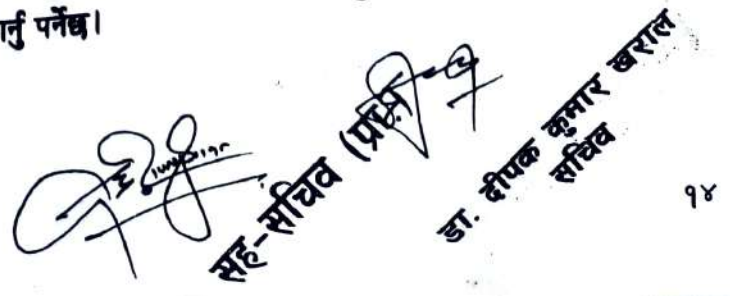 पर्नेछ।
सह-सचिव
डा. दीपक कुमार खराल
सचिव
१४